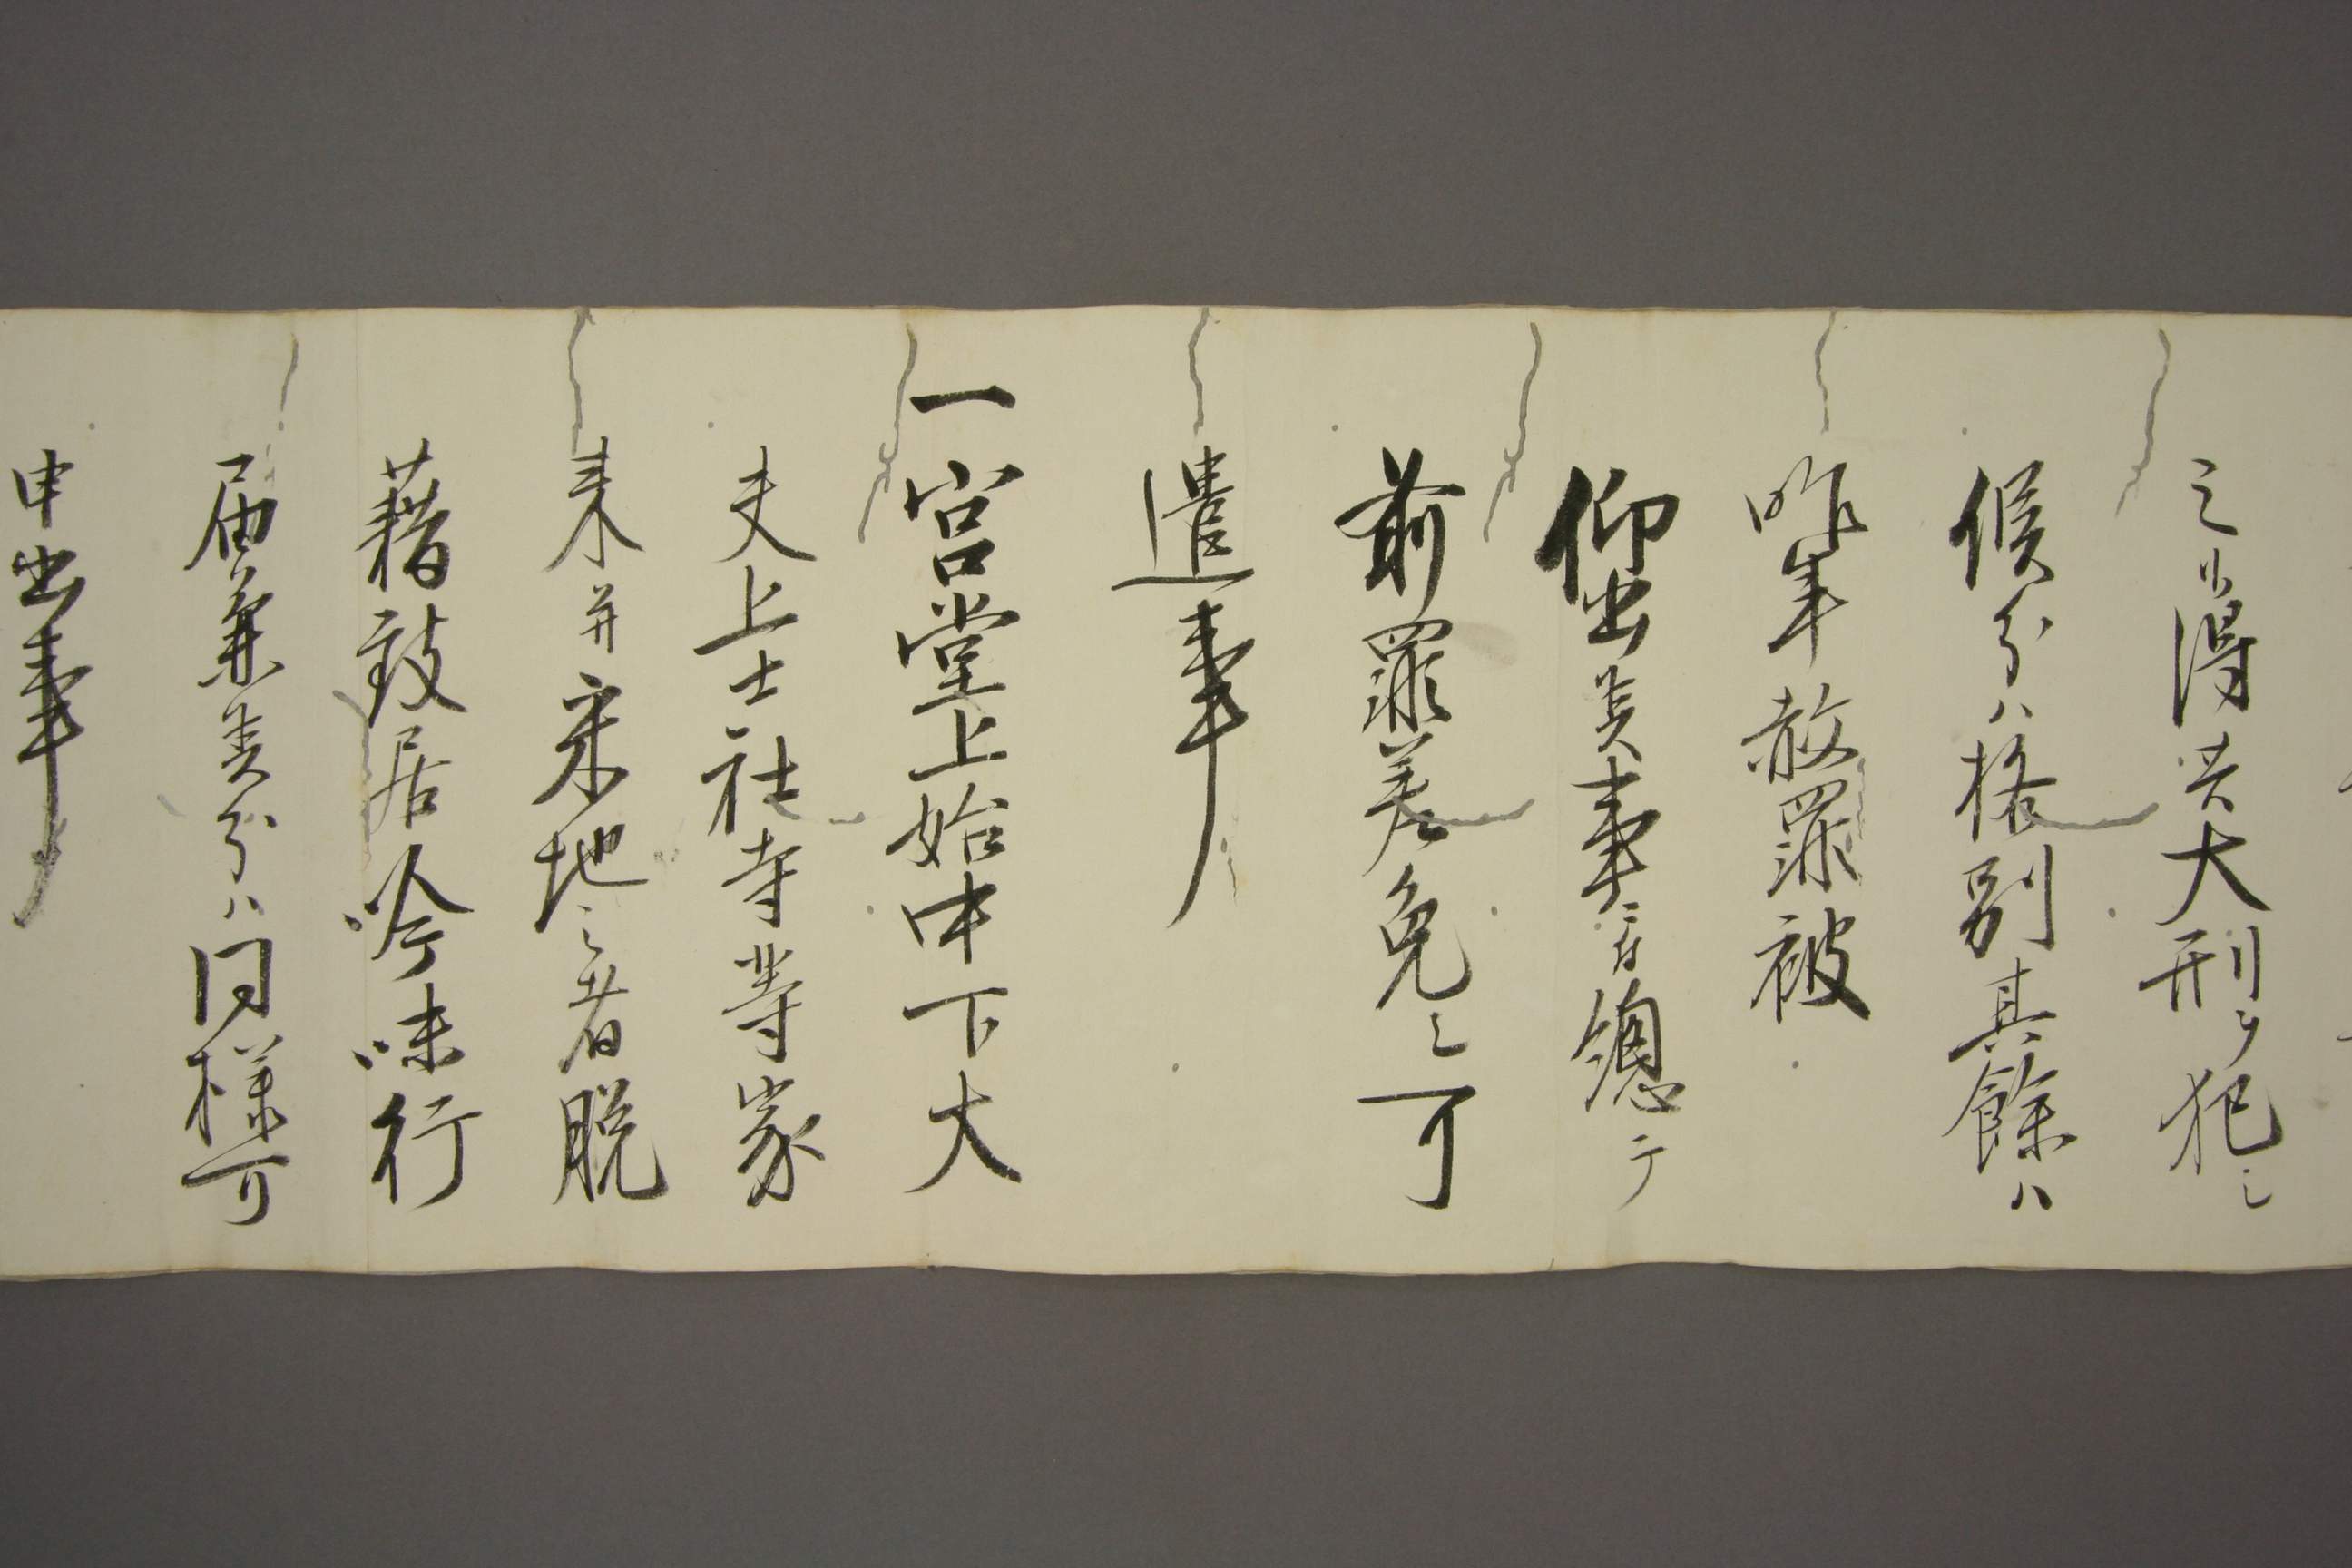 之不得共大刑ヲ犯シ
候分ハ格別其餘ハ
昨年赦罪被
仰出候事ニ付總テ
前罪差免シ可
遣事
一宮堂上始中下大
夫上士社寺等家
来并采地之者脱
籍致居吟味行
届兼候分ハ同様可
申出事